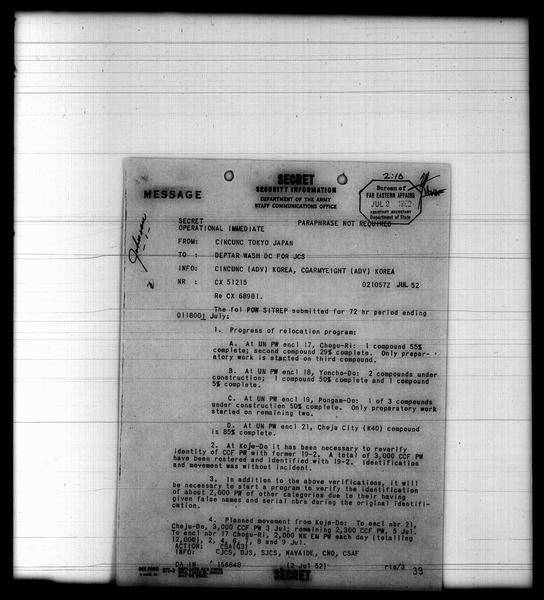 2:10
SECRET
SECURITY INFORMATION
DEPARTMENT OF THE ARMY
STAFF COMMUNICATIONS OFFICE
MESSAGE
Bureau of
FAR EASTERN AFFAIRS
JUL 2 1952
ASSISTANT SECRETARY
Department of State
SECRET PARAPHRASE NOT REQUIRED
OPERATIONAL IMMEDIATE
FROM: CINCUNC TOKYO JAPAN
TO : DEPTAR WASH DC FOR JCS
INFO: CINCUNC (ADV) KOREA, CGARMYEIGHT (ADV) KOREA
NR : CX 51215 021057Z JUL 52
Re CX 68981.
The fol POW SITREP submitted for 72 hr period ending
011800I July:
1. Progress of relocation program:
A. At UN PW encl 17, Chogu-Ri: 1 compound 55%
complete; second compound 29% complete. Only prepar-
atory work is started on third compound.
B. At UN PW encl 18, Yoncho-Do: 2 compounds under
construction; 1 compound 50% complete and 1 compound
5% complete.
C. At UN PW encl 19, Pongam-Do: 1 of 3 compounds
under construction 50% complete. Only preparatory work
started on remaining two.
D. At UN PW encl 21, Cheju City (K40) compound
is 85% complete.
2. At Koje-Do it has been necessary to reverify
identity of CCF PW with former 19-2. A total of 3,000 CCF PW
have been rostered and identified with 19-2. Identification
and movement was without incident.
3. In addition to the above verifications, it will
be necessary to start a program to verify the identification
of about 2,000 PW of other categories due to their having
given false names and serial nbrs during the original identifi-
cation.
4. Planned movement from Koje-Do: To encl nbr 21,
Cheju-Do, 3,000 CCF PW 3 Jul; remaining 2,300 CCF PW, 5 Jul.
To encl nbr 17 Chogu-Ri, 2,000 NK EM PW each day (totalling
12,000), 2, 4, 6, 7, 8 and 9 Jul.
ACTION: CSA(G3)
INFO: CJCS, DJS, SJCS, NAVAIDE, CNO, CSAF
DA IN 156848 (2 Jul 52) rto/3 39
SECRET